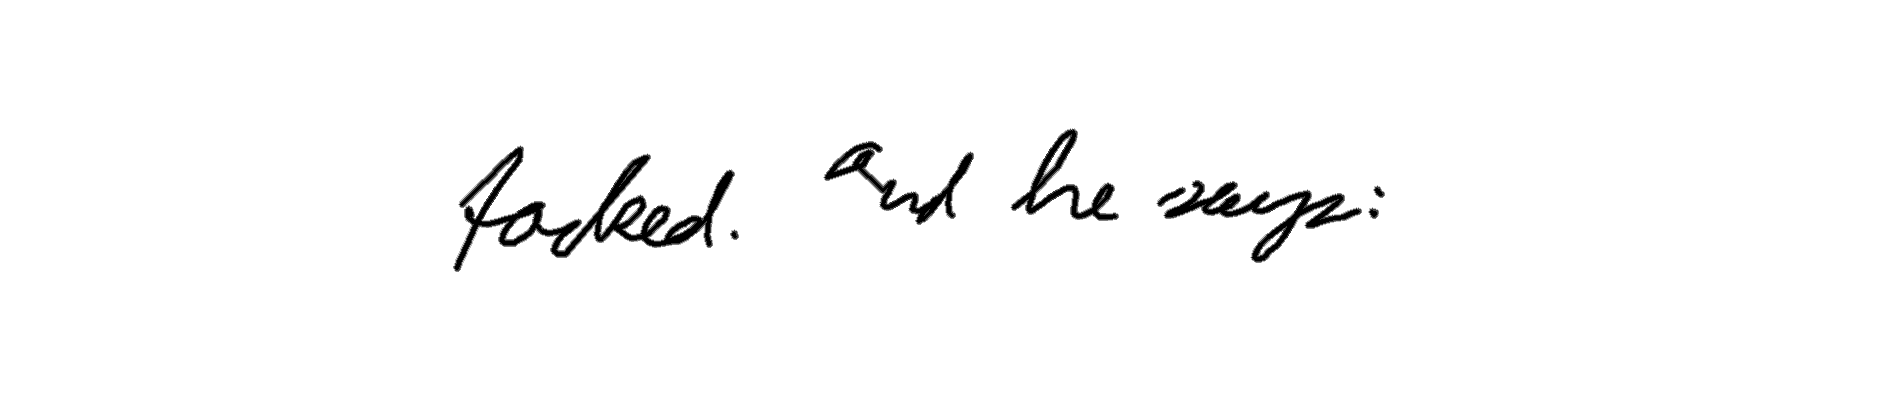 focked. and he says: